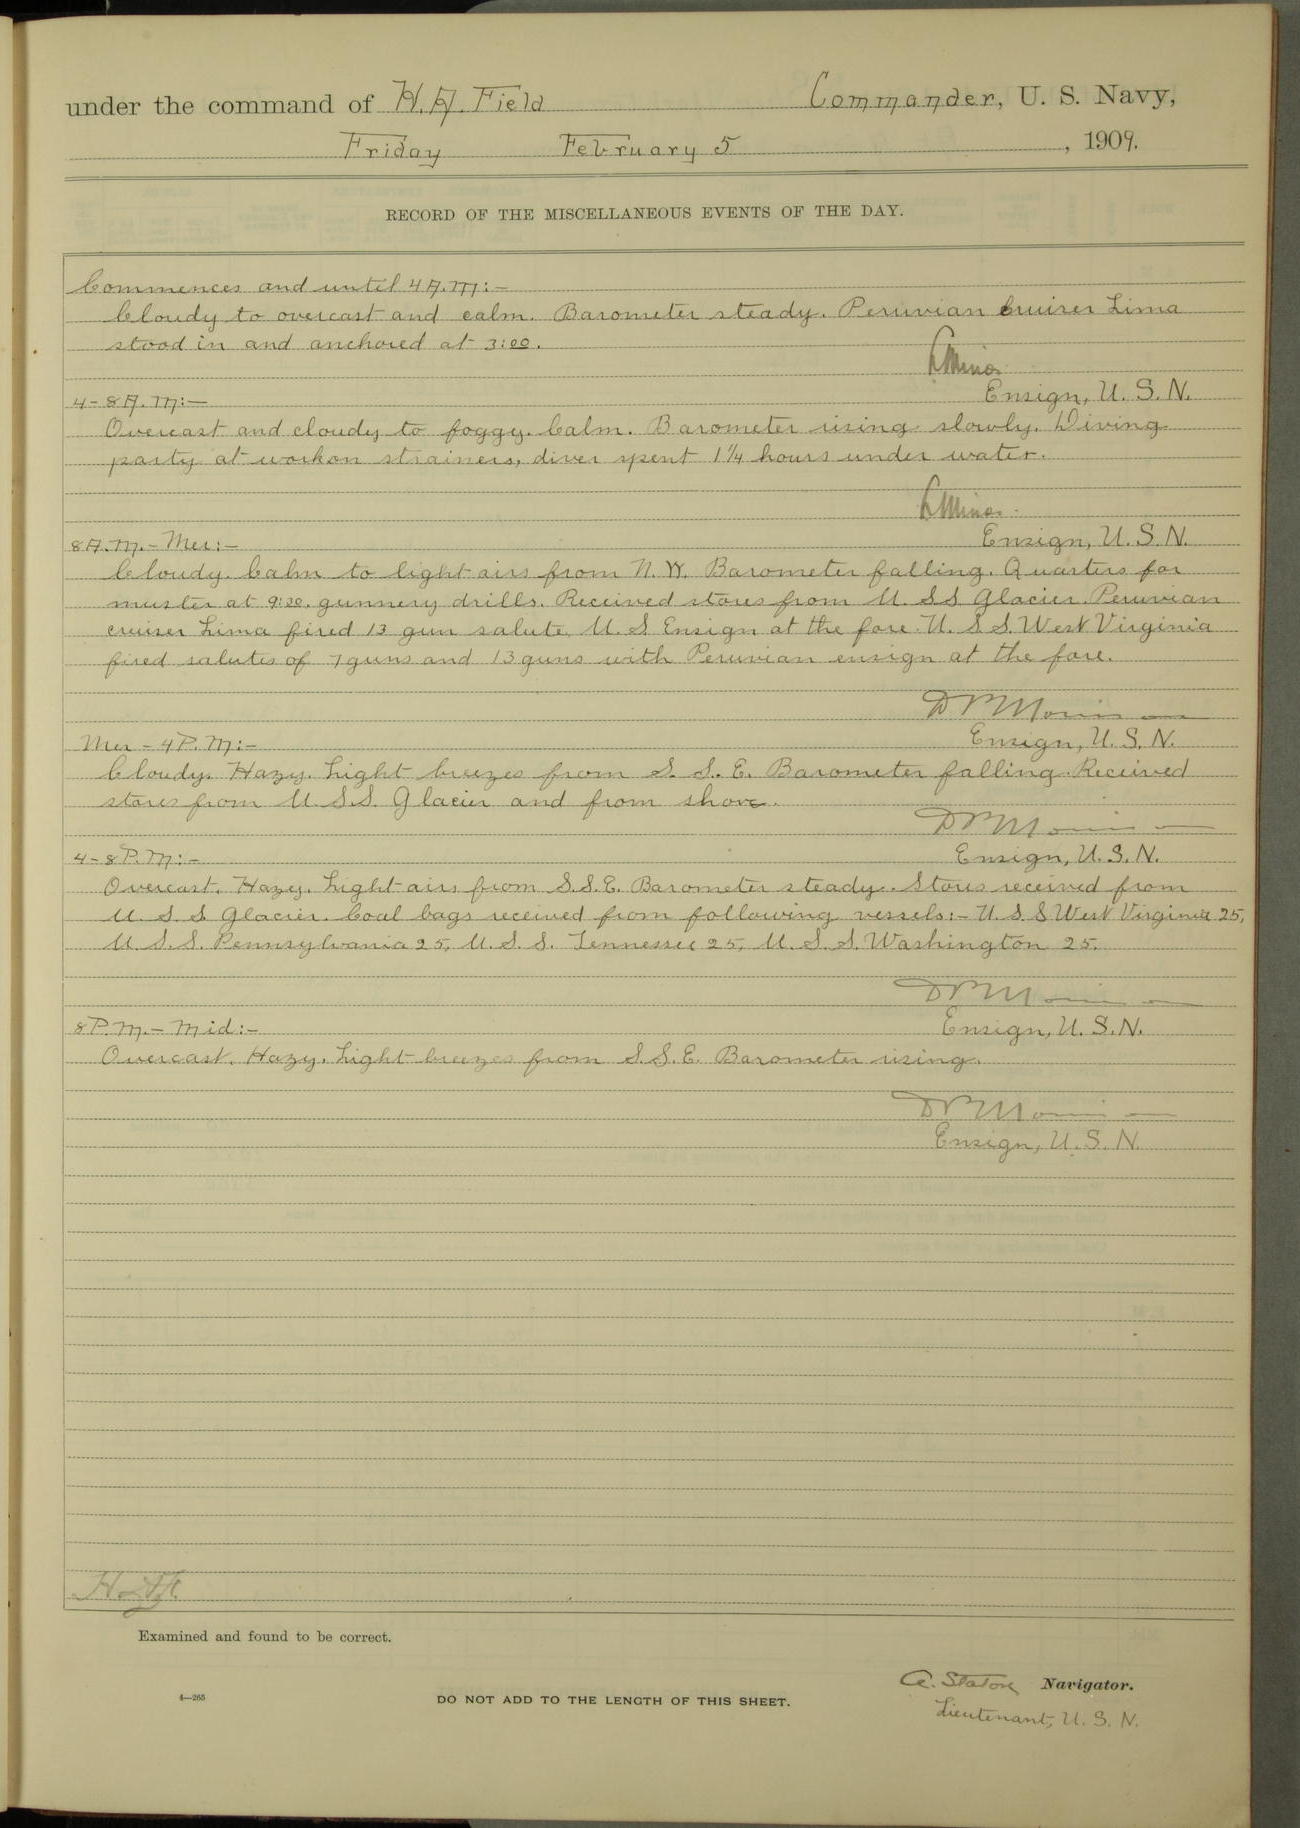 under the command of H. A. Field Commander, U. S. Navy,
Friday February 5, 1909.
RECORD OF THE MISCELLANEOUS EVENTS OF THE DAY.
Commences and until 4 A.M:-
Cloudy to overcast and calm. Barometer steady. Peruvian Cruiser Lima
stood in and anchored at 3:00.
Ensign, U. S. N.
4-8 A.M:-
Overcast and cloudy to foggy. Calm. Barometer rising slowly. Diving
party at work on strainers, diver spent 1 1/4 hours under water.
Ensign, U. S. N.
8 A.M.- Mer:-
Cloudy. Calm to light airs from N. W. Barometer falling. Quarters for
muster at 9:20, gunnery drills. Received stores from U. S S Glacier. Peruvian
cruiser Lima fired 13 gun salute, U. S Ensign at the fore. U. S. S. West Virginia
fired salutes of 7 guns and 13 guns with Peruvian ensign at the fore.
Ensign, U. S. N.
Mer - 4 P. M:-
Cloudy. Hazy. Light breezes from S. S. E. Barometer falling. Received
stores from U. S. S. Glacier and from shore.
Ensign, U. S. N.
4-8 P. M:-
Overcast. Hazy. Light airs from S. S. E. Barometer steady. Stores received from
U. S. S. Glacier. Coal bags received from following vessels:- U. S. S West Virginia 25,
U. S. S. Pennsylvania 25, U. S. S. Tennessee 25, U. S. S. Washington 25.
Ensign, U. S. N.
8 P. M.- Mid:-
Overcast. Hazy. Light breezes from S. S. E. Barometer rising.
Ensign, U. S. N.
Examined and found to be correct.
A. Staton Navigator.
4—265 DO NOT ADD TO THE LENGTH OF THIS SHEET.
Lieutenant, U. S. N.